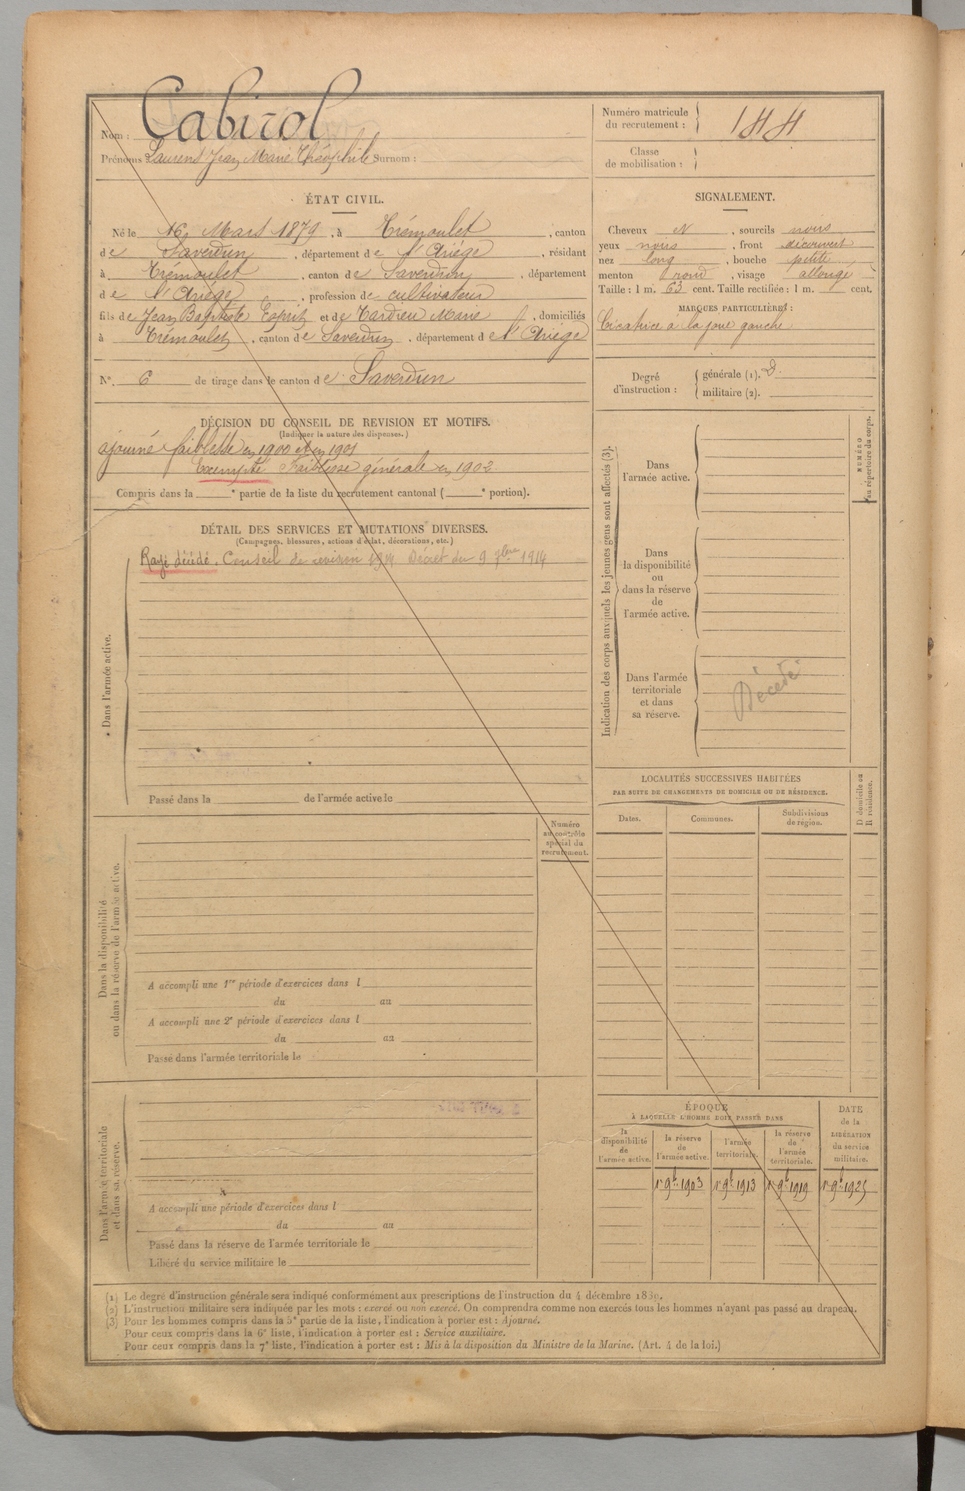 Nom : Cabirol
Prénoms : Laurent Jean Marie Théophile Surnom :
Numéro matricule
du recrutement :
Classe
de mobilisation :
ÉTAT CIVIL.
Né le 16 Mars 1879, à Trémoulet, canton
de Saverdun, département de l'Ariège, résidant
à Trémoulet, canton de Saverdun, département
de l'Ariège, profession de cultivateur
fils de Jean Baptiste Esprit et de Tardieu Marie, domiciliés
à Trémoulet, canton de Saverdun, département de l'Ariège
N° 6 de tirage dans le canton de Saverdun
SIGNALEMENT.
Cheveux N, sourcils noirs
yeux noirs, front découvert
nez long, bouche petite
menton rond, visage allongé
Taille : 1 m. 63 cent. Taille rectifiée : 1 m. cent.
MARQUES PARTICULIÈRES :
Cicatrice à la joue gauche
Degré
d'instruction :
générale (1).
militaire (2).
DÉCISION DU CONSEIL DE REVISION ET MOTIFS.
(Indiquer la nature des dispenses.)
ajourné faiblesse en 1900 et en 1901
Exempté Faiblesse générale en 1902
Compris dans la e partie de la liste du recrutement cantonal ( e portion).
DÉTAIL DES SERVICES ET MUTATIONS DIVERSES.
(Campagnes, blessures, actions d'éclat, décorations, etc.)
Rayé décédé. Conseil de revision 1914 Décret du 9 7bre 1914
Dans l'armée active.
Passé dans la de l'armée active le
Numéro
au contrôle
spécial du
recrutement.
Dans la disponibilité
ou dans la réserve de l'armée active.
A accompli une 1re période d'exercices dans l
du au
A accompli une 2e période d'exercices dans l
du au
Passé dans l'armée territoriale le
Dans l'armée territoriale
et dans sa réserve.
A accompli une période d'exercices dans l
du au
Passé dans la réserve de l'armée territoriale le
Libéré du service militaire le
Indication des corps auxquels les jeunes gens sont affectés (3).
Dans
l'armée active.
Dans
la disponibilité
ou
dans la réserve
de
l'armée active.
Dans l'armée
territoriale
et dans
sa réserve.
Décédé
NUMÉRO
au répertoire du corps.
LOCALITÉS SUCCESSIVES HABITÉES
PAR SUITE DE CHANGEMENTS DE DOMICILE OU DE RÉSIDENCE.
Dates.
Communes.
Subdivisions
de région.
D domicile ou
R résidence.
ÉPOQUE
À LAQUELLE L'HOMME DOIT PASSER DANS
la
disponibilité
de
l'armée active.
la réserve
de
l'armée active.
l'armée
territoriale.
la réserve
de
l'armée
territoriale.
DATE
de la
LIBÉRATION
du service
militaire.
1er 9bre 1903 1er 9bre 1913 1er 9bre 1919 1er 9bre 1925
(1) Le degré d'instruction générale sera indiqué conformément aux prescriptions de l'instruction du 4 décembre 1889.
(2) L'instruction militaire sera indiquée par les mots : exercé ou non exercé. On comprendra comme non exercés tous les hommes n'ayant pas passé au drapeau.
(3) Pour les hommes compris dans la 5e partie de la liste, l'indication à porter est : Ajourné.
Pour ceux compris dans la 6e liste, l'indication à porter est : Service auxiliaire.
Pour ceux compris dans la 7e liste, l'indication à porter est : Mis à la disposition du Ministre de la Marine. (Art. 4 de la loi.)